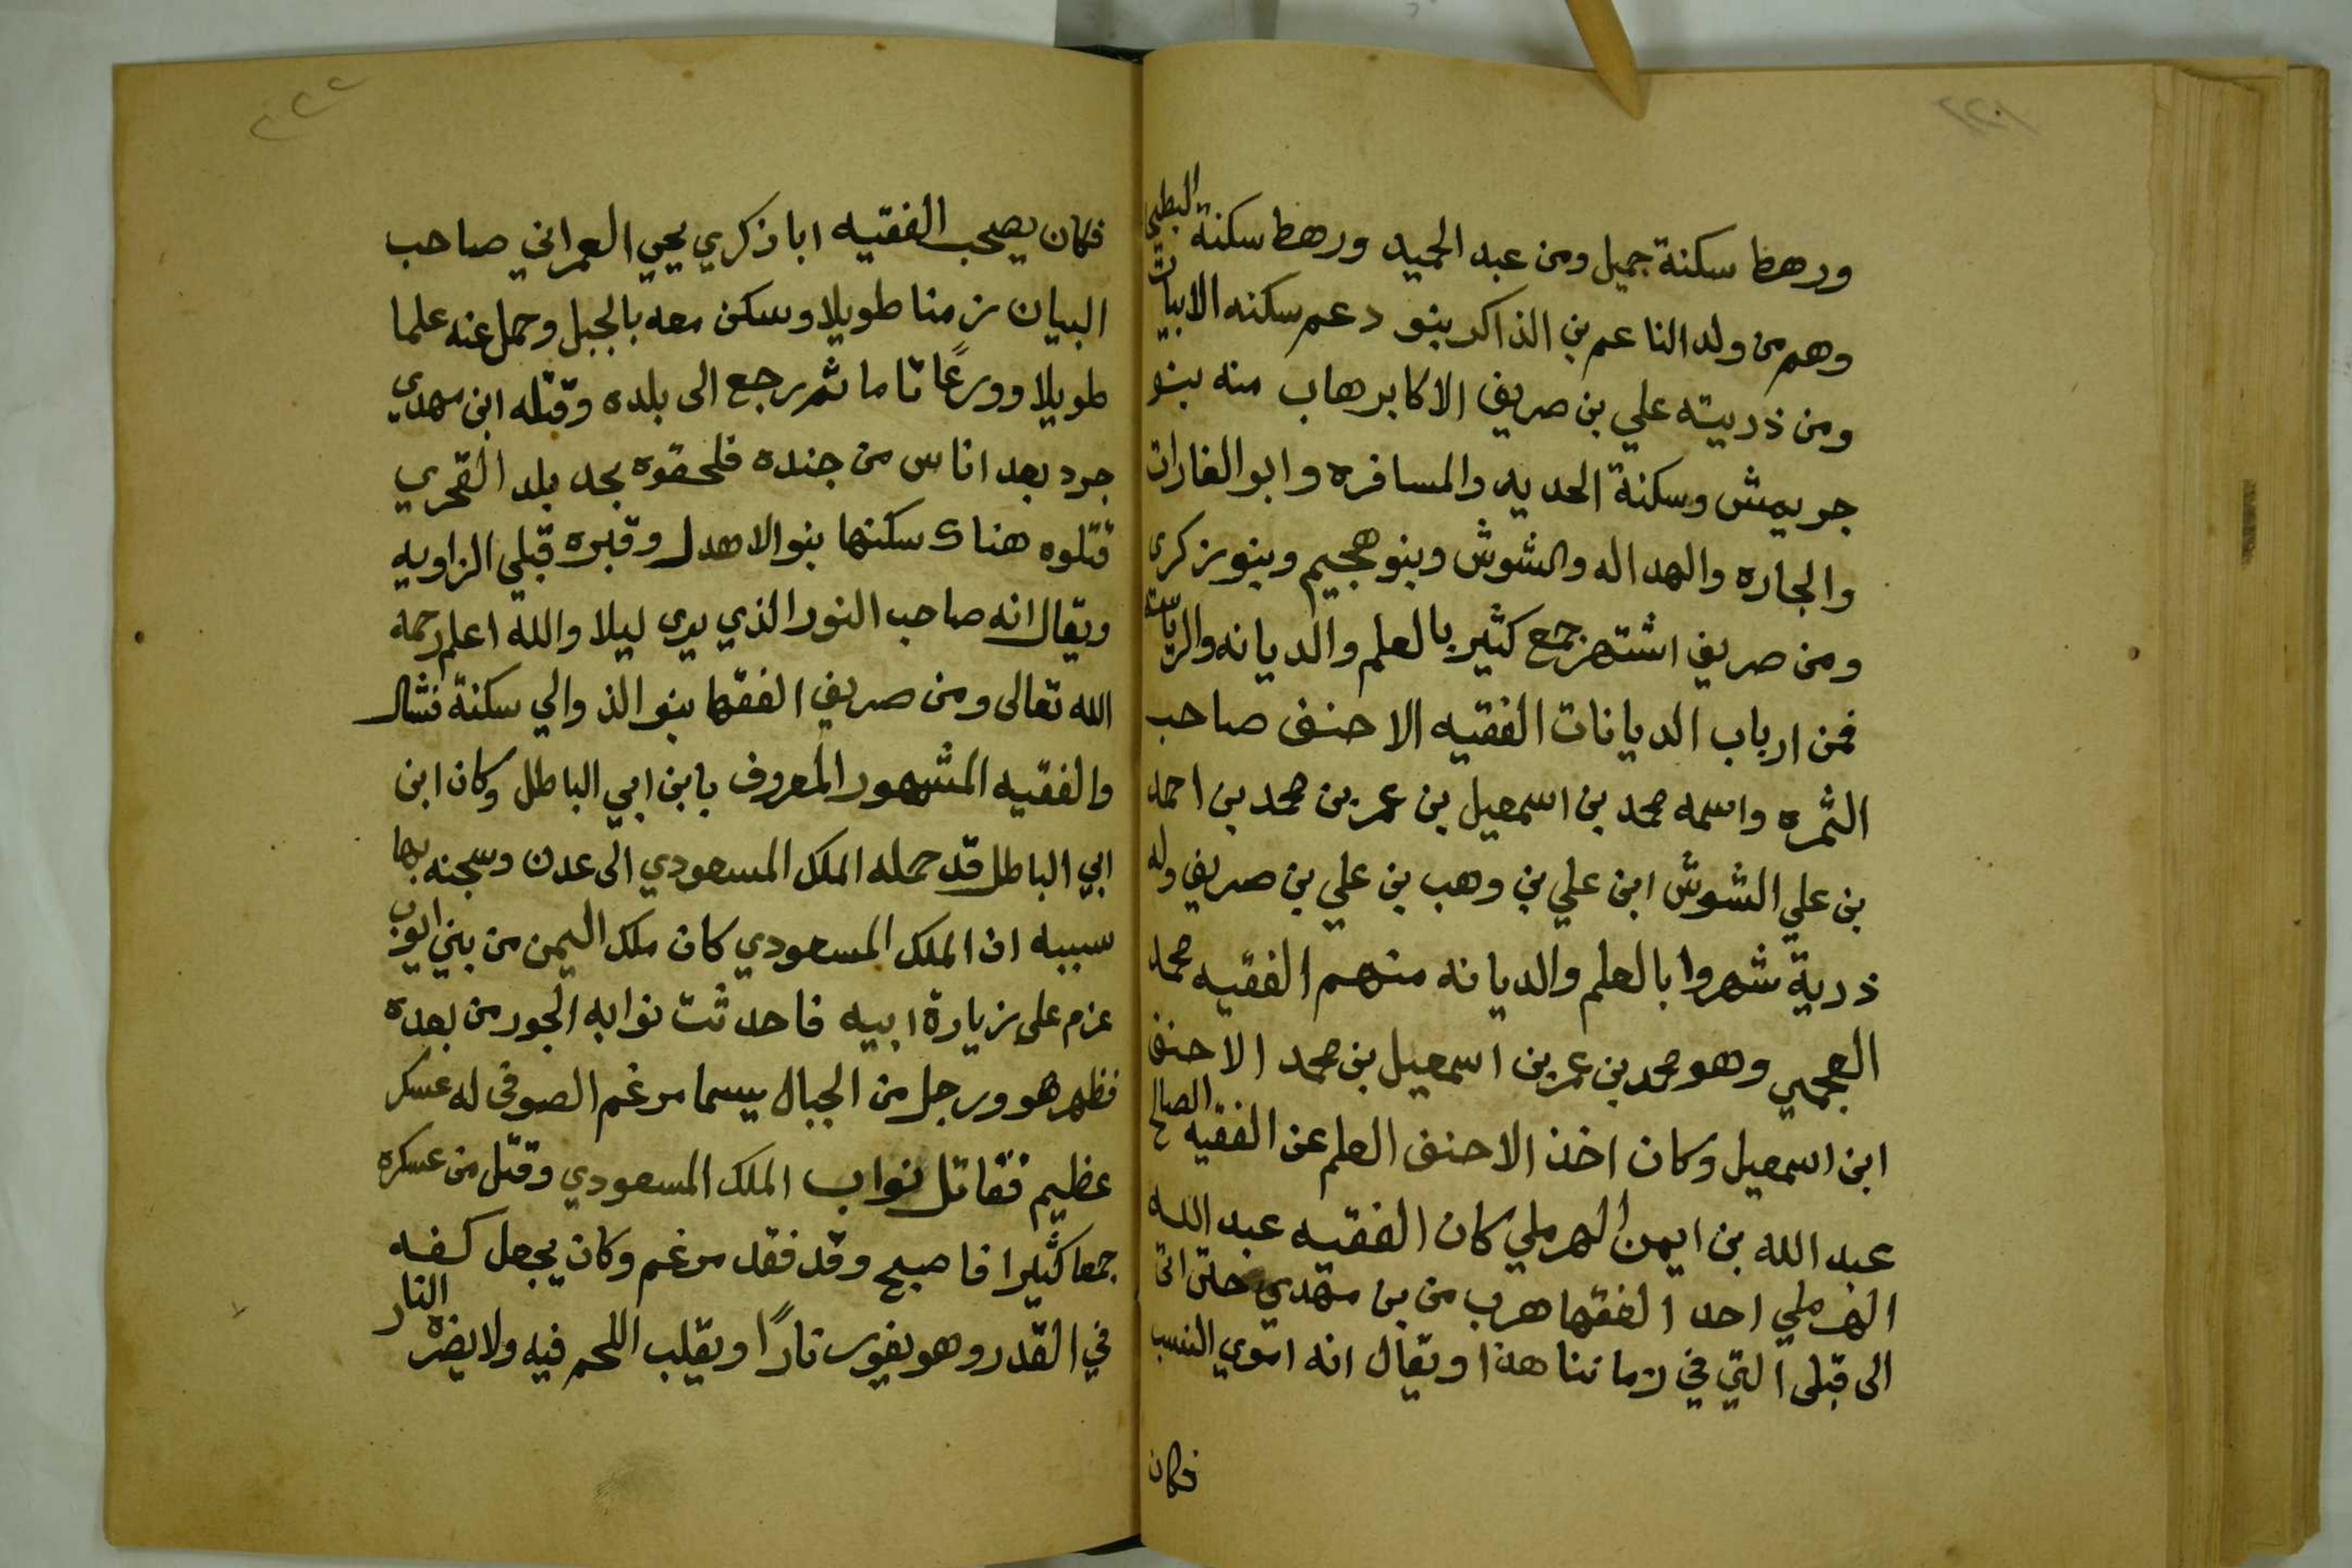 ٢٢١
ورهط سكنة جميل ومن عبد الحميد ورهط سكنة البطيح
وهم من ولد الناعم بن الذاكر بنو دعم سكنه الابيات
ومن ذريته علي بن صريف الاكابر هاب منه بنو
جريمش وسكنة الحديه والمسافره وابو الغارات
والجاره والهداله والشوش وبنو هجيم وبنو زكرى
ومن صريف اشتهر جمع كثير بالعلم والديانه والرياسة
فمن ارباب الديانات الفقيه الاحنف صاحب
الثمره واسمه محمد بن اسمعيل بن عمر بن محمد بن احمد
بن علي الشوش ابن علي بن وهب بن علي بن صريف وله
ذرية شهروا بالعلم والديانه منهم الفقيه محمد
العجمي وهو محمد بن عمر بن اسمعيل بن محمد الاحنف
ابن اسمعيل وكان اخذ الاحنف العلم عن الفقيه الصالح
عبد الله بن ايمن الهرملي كان الفقيه عبد الله
الهرملي احد الفقها هرب من بن مهدي حتى اتى
الى قبلى التي في زماننا هذا ويقال انه اموي النسب
فكان
٢٢٢
فكان يصحب الفقيه ابا زكري يحيي العمراني صاحب
البيان زمنا طويلا وسكن معه بالجبل وحمل عنه علما
طويلا وورعًا تاما ثم رجع الى بلده وقتله ابن مهدي
جرد بعد اناس من جنده فلحقوه بحد بلد القحري
قتلوه هناك سكنها بنو الاهدل وقبره قبلي الزاويه
ويقال انه صاحب النور الذي يرى ليلا والله اعلم رحمه
الله تعالى ومن صريف الفقها بنو الذوالي سكنة فشال
والفقيه المشهور المعروف بابن ابي الباطل وكان ابن
ابي الباطل قد حمله الملك المسعودي الى عدن وسجنه بها
سببه ان الملك المسعودي كان ملك اليمن من بني ايوب
عزم على زيارة ابيه فاحدثت نوابه الجور من بعده
فظهر هو ورجل من الجبال يسما مرغم الصوفى له عسكر
عظيم فقاتل نواب الملك المسعودي وقتل من عسكره
جمعا كثيرا فاصبح وقد فقد مرغم وكان يجعل كفه
في القدر وهو يفور نارًا ويقلب اللحم فيه ولا يضره النار